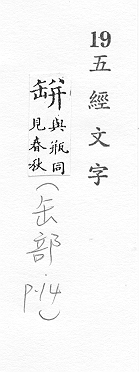 19
五經文字
缾
與瓶同
見春秋
(缶部 p.14)